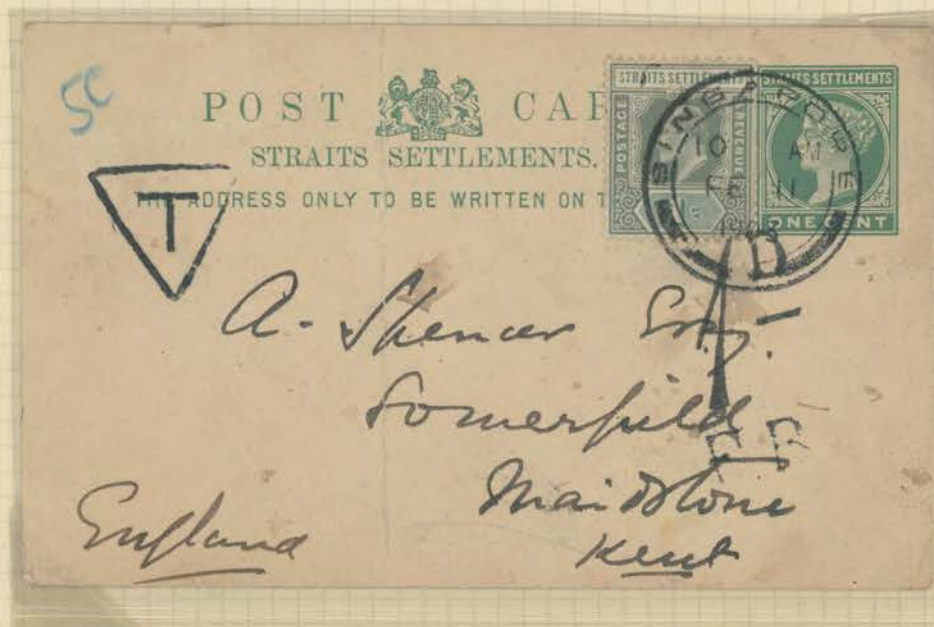 5C
POST CAR
STRAITS SETTLEMENTS.
THE ADDRESS ONLY TO BE WRITTEN ON T
STRAITS SETTLEM
POSTAGE
REVENUE
STRAITS SETTLEMENTS
ONE CENT
SINGAPORE
10 AM
11
D
T
1D
A. Spencer Esq.
Somerfield
Maidstone
Kent
England